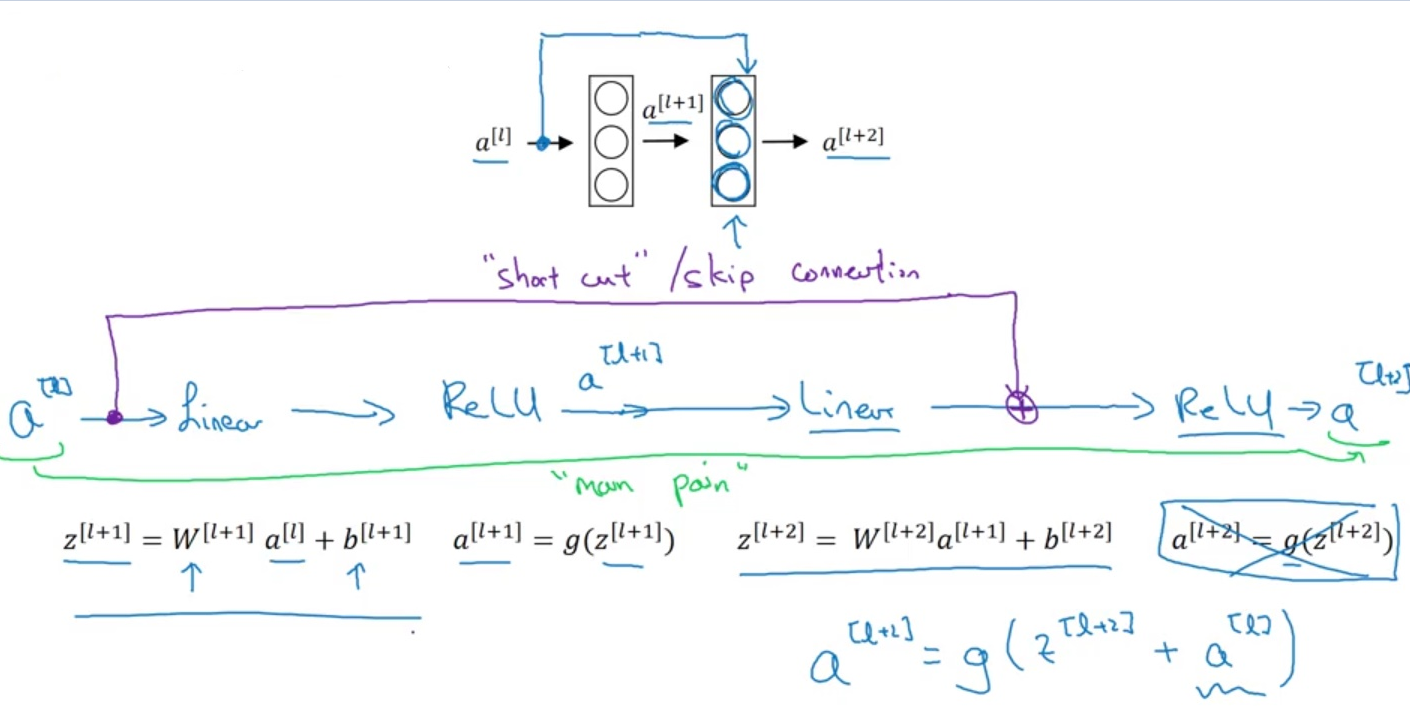 a^[l] a^[l+1] a^[l+2]
"short cut" /skip connection
a^[l] Linear ReLU a^[l+1] Linear ReLU a^[l+2]
"main path"
z^[l+1] = W^[l+1] a^[l] + b^[l+1] a^[l+1] = g(z^[l+1]) z^[l+2] = W^[l+2]a^[l+1] + b^[l+2] a^[l+2] = g(z^[l+2])
a^[l+2] = g(z^[l+2] + a^[l])